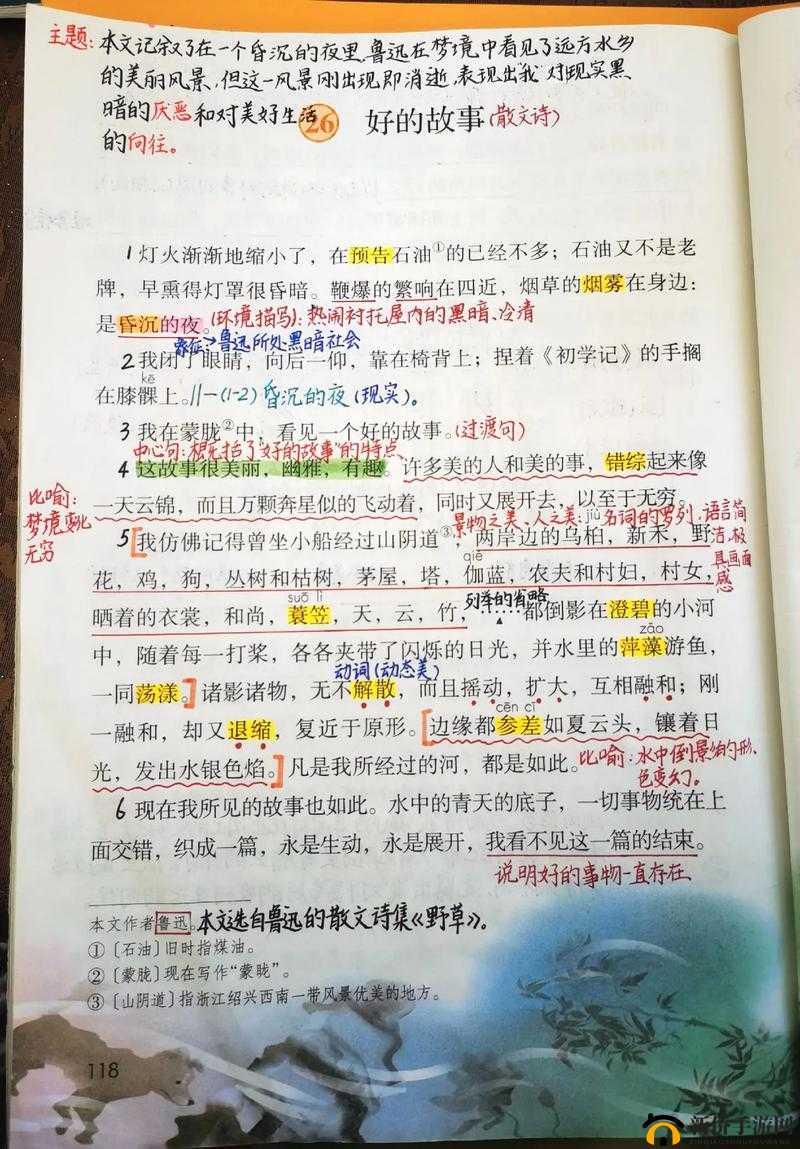 主题:本文记叙了在一个昏沉的夜里,鲁迅在梦境中看见了远方水乡
的美丽风景,但这一风景刚出现即消逝,表现出"我"对现实黑
暗的厌恶和对美好生活
的向往。
26 好的故事(散文诗)
1灯火渐渐地缩小了,在预告石油①的已经不多;石油又不是老
牌,早熏得灯罩很昏暗。鞭爆的繁响在四近,烟草的烟雾在身边:
是昏沉的夜。(环境描写):热闹衬托屋内的黑暗、冷清
象征→鲁迅所处黑暗社会
2我闭了眼睛,向后一仰,靠在椅背上;捏着《初学记》的手搁
kē
在膝髁上。||—(1-2)昏沉的夜(现实)。
3我在蒙胧②中,看见一个好的故事。(过渡句)
中心句:概括了"好的故事"的特点
4这故事很美丽,幽雅,有趣。许多美的人和美的事,错综起来像
一天云锦,而且万颗奔星似的飞动着,同时又展开去,以至于无穷。
比喻:
梦境变化
无穷
景物之美、人之美: jiù 名词的罗列:语言简
洁,极
具画面
感
5我仿佛记得曾坐小船经过山阴道③,两岸边的乌桕,新禾,野
qié
花,鸡,狗,丛树和枯树,茅屋,塔,伽蓝,农夫和村妇,村女,
suō lì
列举的省略
晒着的衣裳,和尚,蓑笠,天,云,竹,……都倒影在澄碧的小河
zǎo
中,随着每一打桨,各各夹带了闪烁的日光,并水里的萍藻游鱼,
动词(动态美)
一同荡漾。诸影诸物,无不解散,而且摇动,扩大,互相融和;刚
cēn cī
一融和,却又退缩,复近于原形。边缘都参差如夏云头,镶着日
光,发出水银色焰。凡是我所经过的河,都是如此。
比喻:水中倒影的形、
色变幻。
6现在我所见的故事也如此。水中的青天的底子,一切事物统在上
面交错,织成一篇,永是生动,永是展开,我看不见这一篇的结束。
说明好的事物一直存在
本文作者鲁迅。本文选自鲁迅的散文诗集《野草》。
①〔石油〕旧时指煤油。
②〔蒙胧〕现在写作“蒙眬”。
③〔山阴道〕指浙江绍兴西南一带风景优美的地方。
118